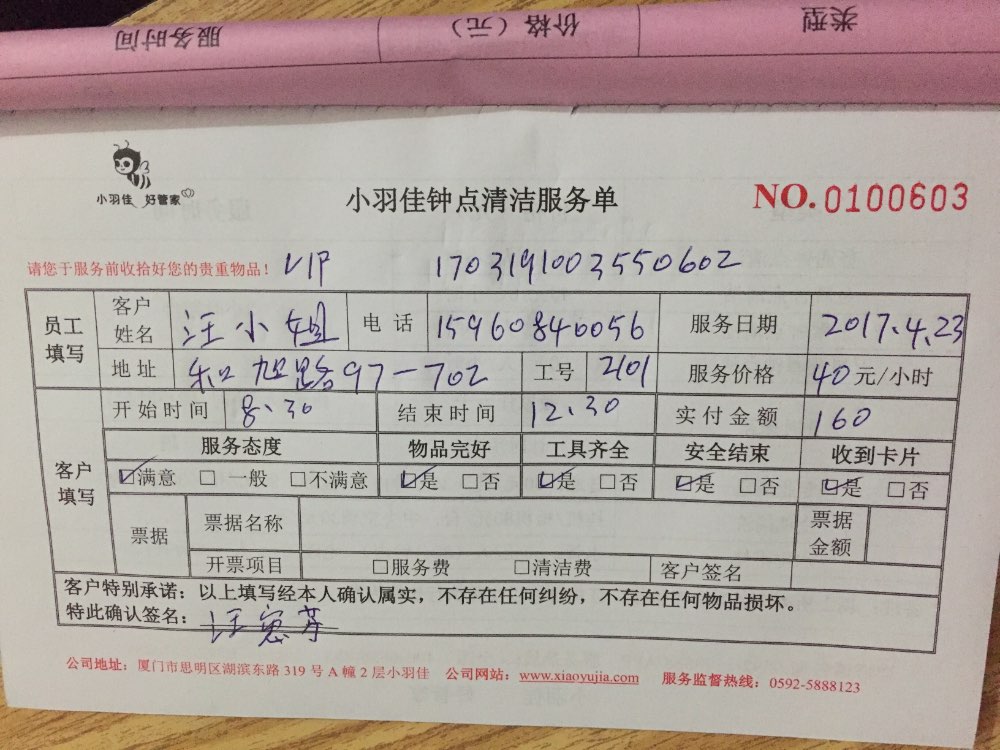 服务时间 价格（元） 类型
小羽佳 好管家
小羽佳钟点清洁服务单
NO.0100603
请您于服务前收拾好您的贵重物品！ VIP 1703191003550602
员工填写 客户姓名 汪小姐 电话 15960840056 服务日期 2017.4.23
地址 和旭路97-702 工号 2101 服务价格 40元/小时
客户填写 开始时间 8.30 结束时间 12.30 实付金额 160
服务态度 物品完好 工具齐全 安全结束 收到卡片
☑满意 □一般 □不满意 ☑是 □否 ☑是 □否 ☑是 □否 ☑是 □否
票据 票据名称 票据金额
开票项目 □服务费 □清洁费 客户签名
客户特别承诺：以上填写经本人确认属实，不存在任何纠纷，不存在任何物品损坏。
特此确认签名：汪
公司地址：厦门市思明区湖滨东路 319 号 A 幢 2 层小羽佳 公司网站：www.xiaoyujia.com 服务监督热线：0592-5888123